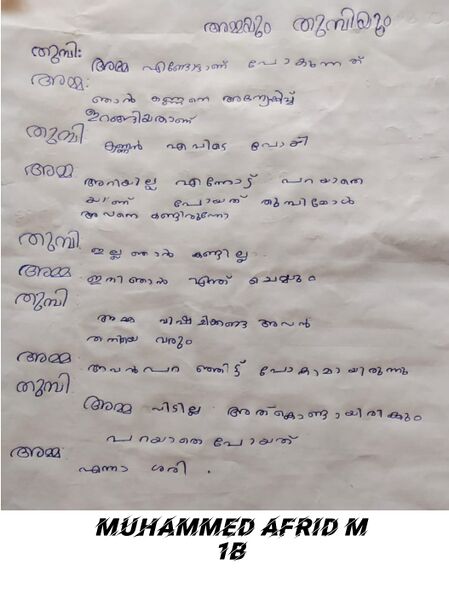 അമ്മയും തുമ്പിയും
തുമ്പി: അമ്മ എങ്ങോട്ടാണ് പോകുന്നത്
അമ്മ:
ഞാൻ കണ്ണനെ അന്വേഷിച്ച്
ഇറങ്ങിയതാണ്
തുമ്പി
കണ്ണൻ എവിടെ പോയി
അമ്മ
അറിയില്ല എന്നോട് പറയാതെ
യാണ് പോയത് തുമ്പിയോൾ
അവനെ കണ്ടിരുന്നോ
തുമ്പി ഇല്ല ഞാൻ കണ്ടില്ല.
അമ്മ ഇനി ഞാൻ എന്ത് ചെയ്യും
തുമ്പി
അമ്മ വിഷമിക്കണ്ട അവൻ
തനിയെ വരും
അമ്മ അവൻ പറ ഞ്ഞിട്ട് പോകാമായിരുന്നു
തുമ്പി
അമ്മ വിടില്ല അത്കൊണ്ടായിരിക്കും
പറയാതെ പോയത്
അമ്മ
എന്നാ ശരി.
MUHAMMED AFRID M
1B